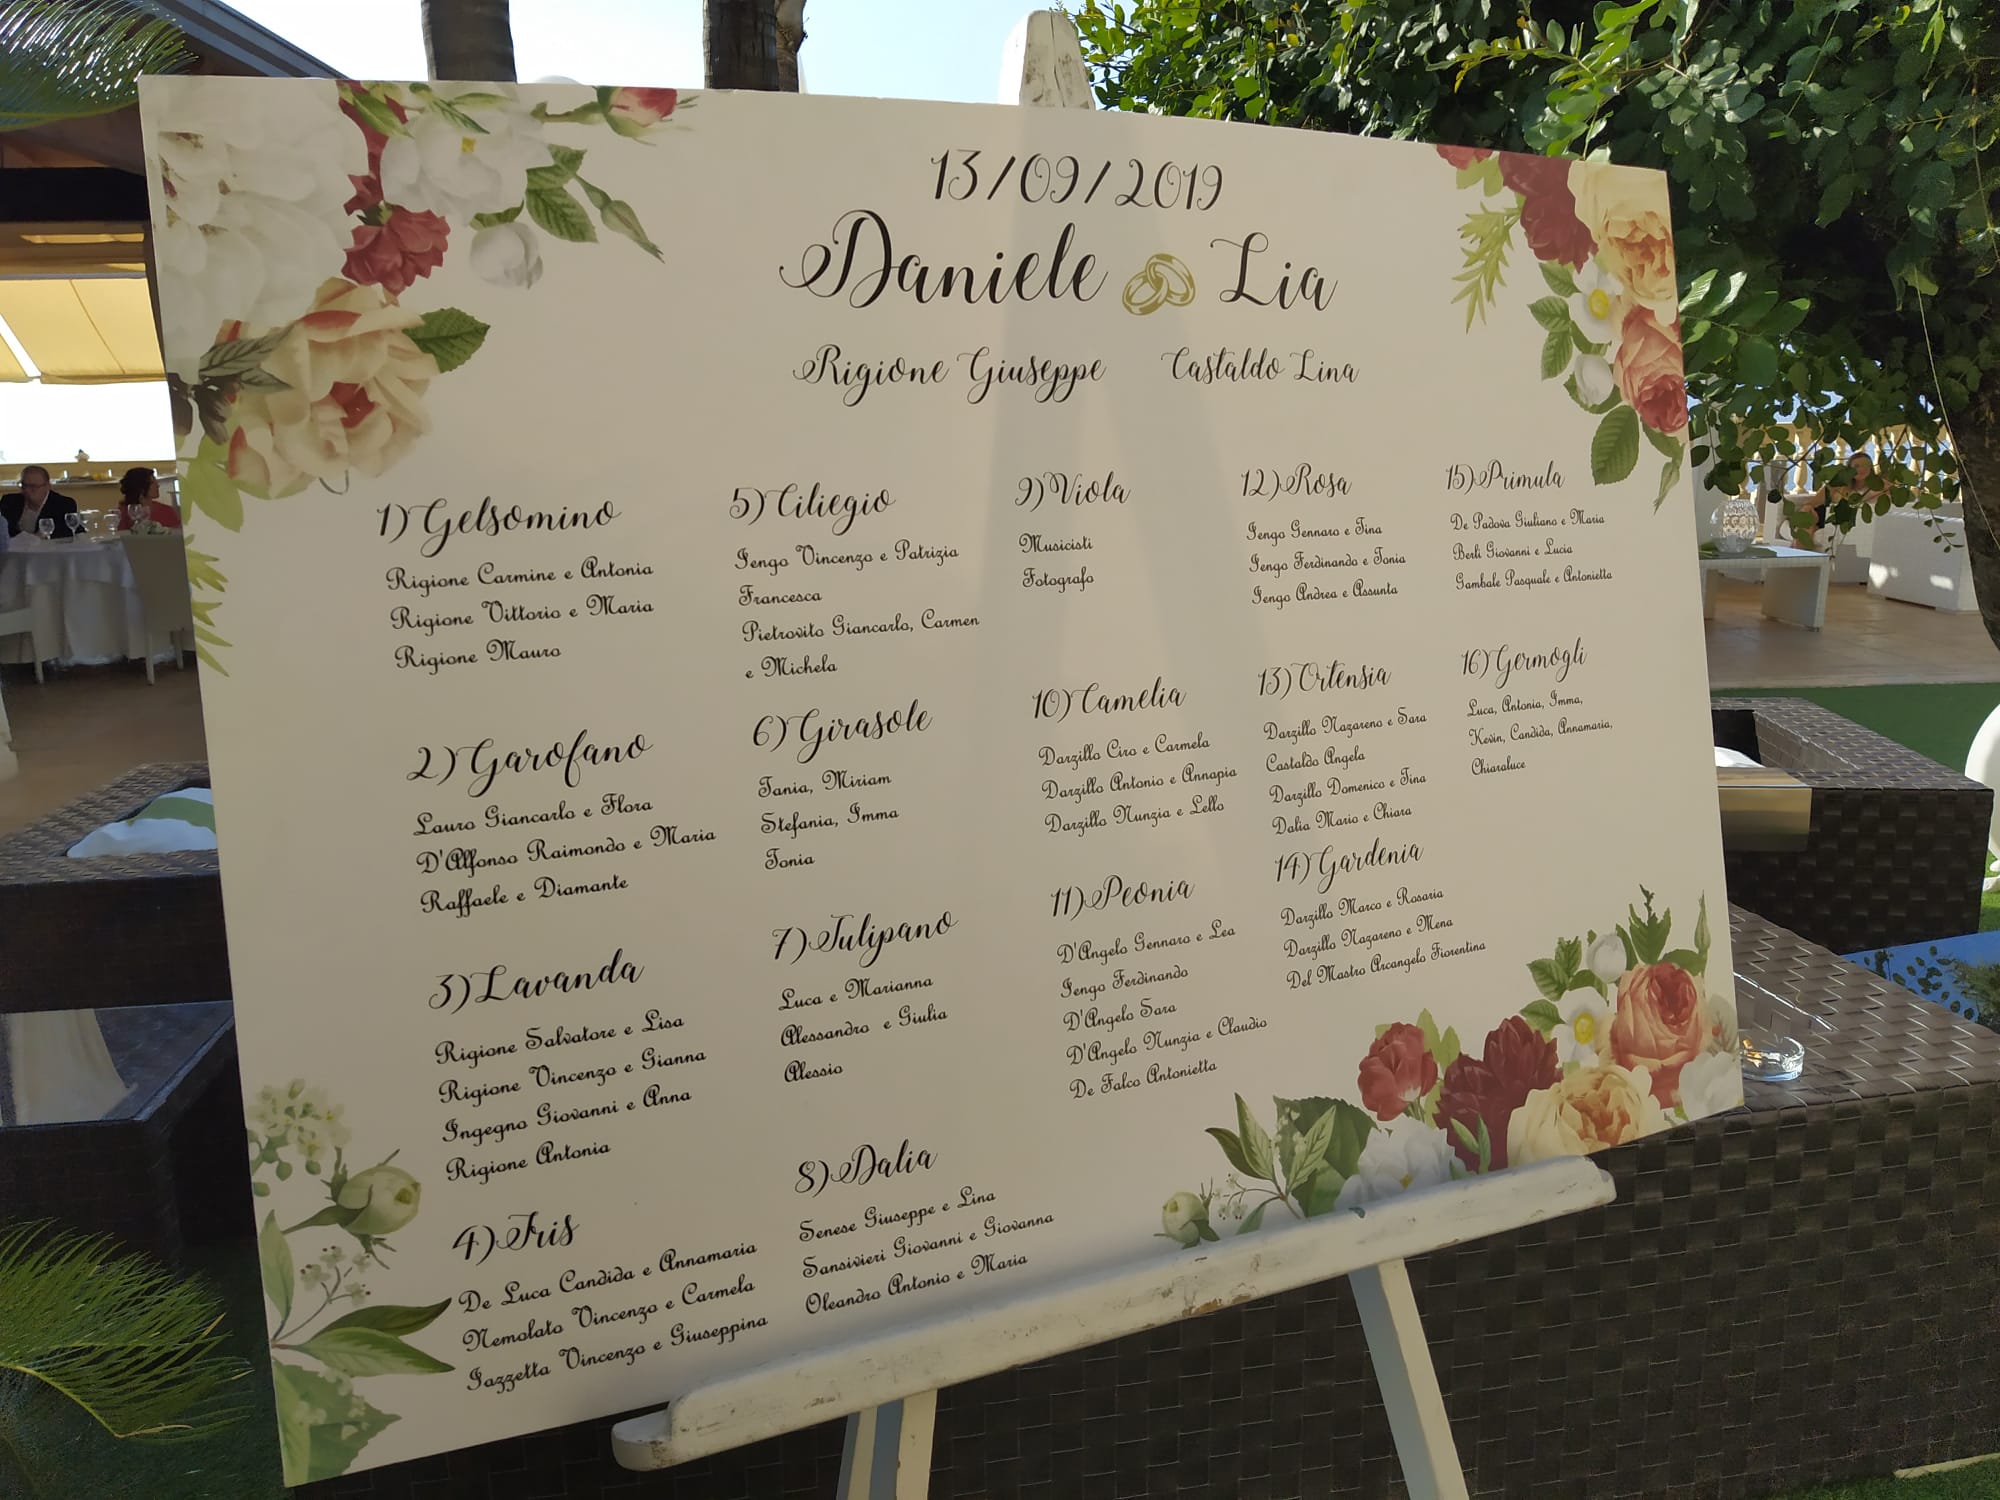 13/09/2019
Daniele Lia
Rigione Giuseppe Castaldo Lina
1) Gelsomino
Rigione Carmine e Antonia
Rigione Vittorio e Maria
Rigione Mauro
2) Garofano
Lauro Giancarlo e Flora
D'Alfonso Raimondo e Maria
Raffaele e Diamante
3) Lavanda
Rigione Salvatore e Lisa
Rigione Vincenzo e Gianna
Ingegno Giovanni e Anna
Rigione Antonia
4) Iris
De Luca Candida e Annamaria
Nemolato Vincenzo e Carmela
Iazzetta Vincenzo e Giuseppina
5) Ciliegio
Iengo Vincenzo e Patrizia
Francesca
Pietrovito Giancarlo, Carmen
e Michela
6) Girasole
Tania, Miriam
Stefania, Imma
Tonia
7) Tulipano
Luca e Marianna
Alessandro e Giulia
Alessio
8) Dalia
Senese Giuseppe e Lina
Sansivieri Giovanni e Giovanna
Oleandro Antonio e Maria
9) Viola
Musicisti
Fotografo
10) Camelia
Darzillo Ciro e Carmela
Darzillo Antonio e Annapia
Darzillo Nunzia e Lello
11) Peonia
D'Angelo Gennaro e Lea
Iengo Ferdinando
D'Angelo Sara
D'Angelo Nunzia e Claudio
De Falco Antonietta
12) Rosa
Iengo Gennaro e Tina
Iengo Ferdinando e Tonia
Iengo Andrea e Assunta
13) Ortensia
Darzillo Nazareno e Sara
Castaldo Angela
Darzillo Domenico e Tina
Dalia Mario e Chiara
14) Gardenia
Darzillo Marco e Rosaria
Darzillo Nazareno e Mena
Del Mastro Arcangelo Fiorentina
15) Primula
De Padova Giuliano e Maria
Berli Giovanni e Lucia
Gambale Pasquale e Antonietta
16) Germogli
Luca, Antonia, Imma,
Kevin, Candida, Annamaria,
Chiaraluce